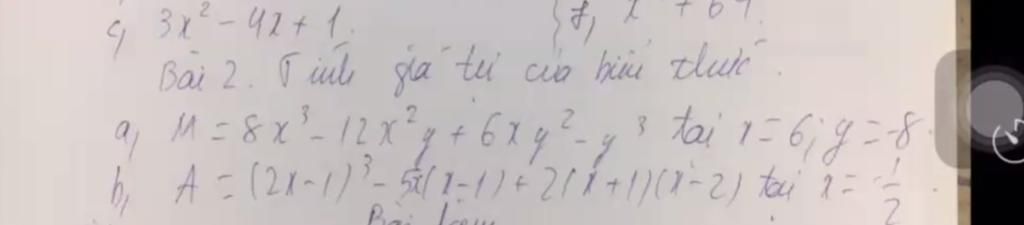 c, 3x² - 4x + 1.
f, x + 64.
Bài 2. Tính giá trị của biểu thức.
a, M = 8x³ - 12x²y + 6xy² - y³ tại x = 6; y = -8.
b, A = (2x-1)³ - 5x(x-1) + 2(x+1)(x-2) tại x = -1/2.
Bài làm